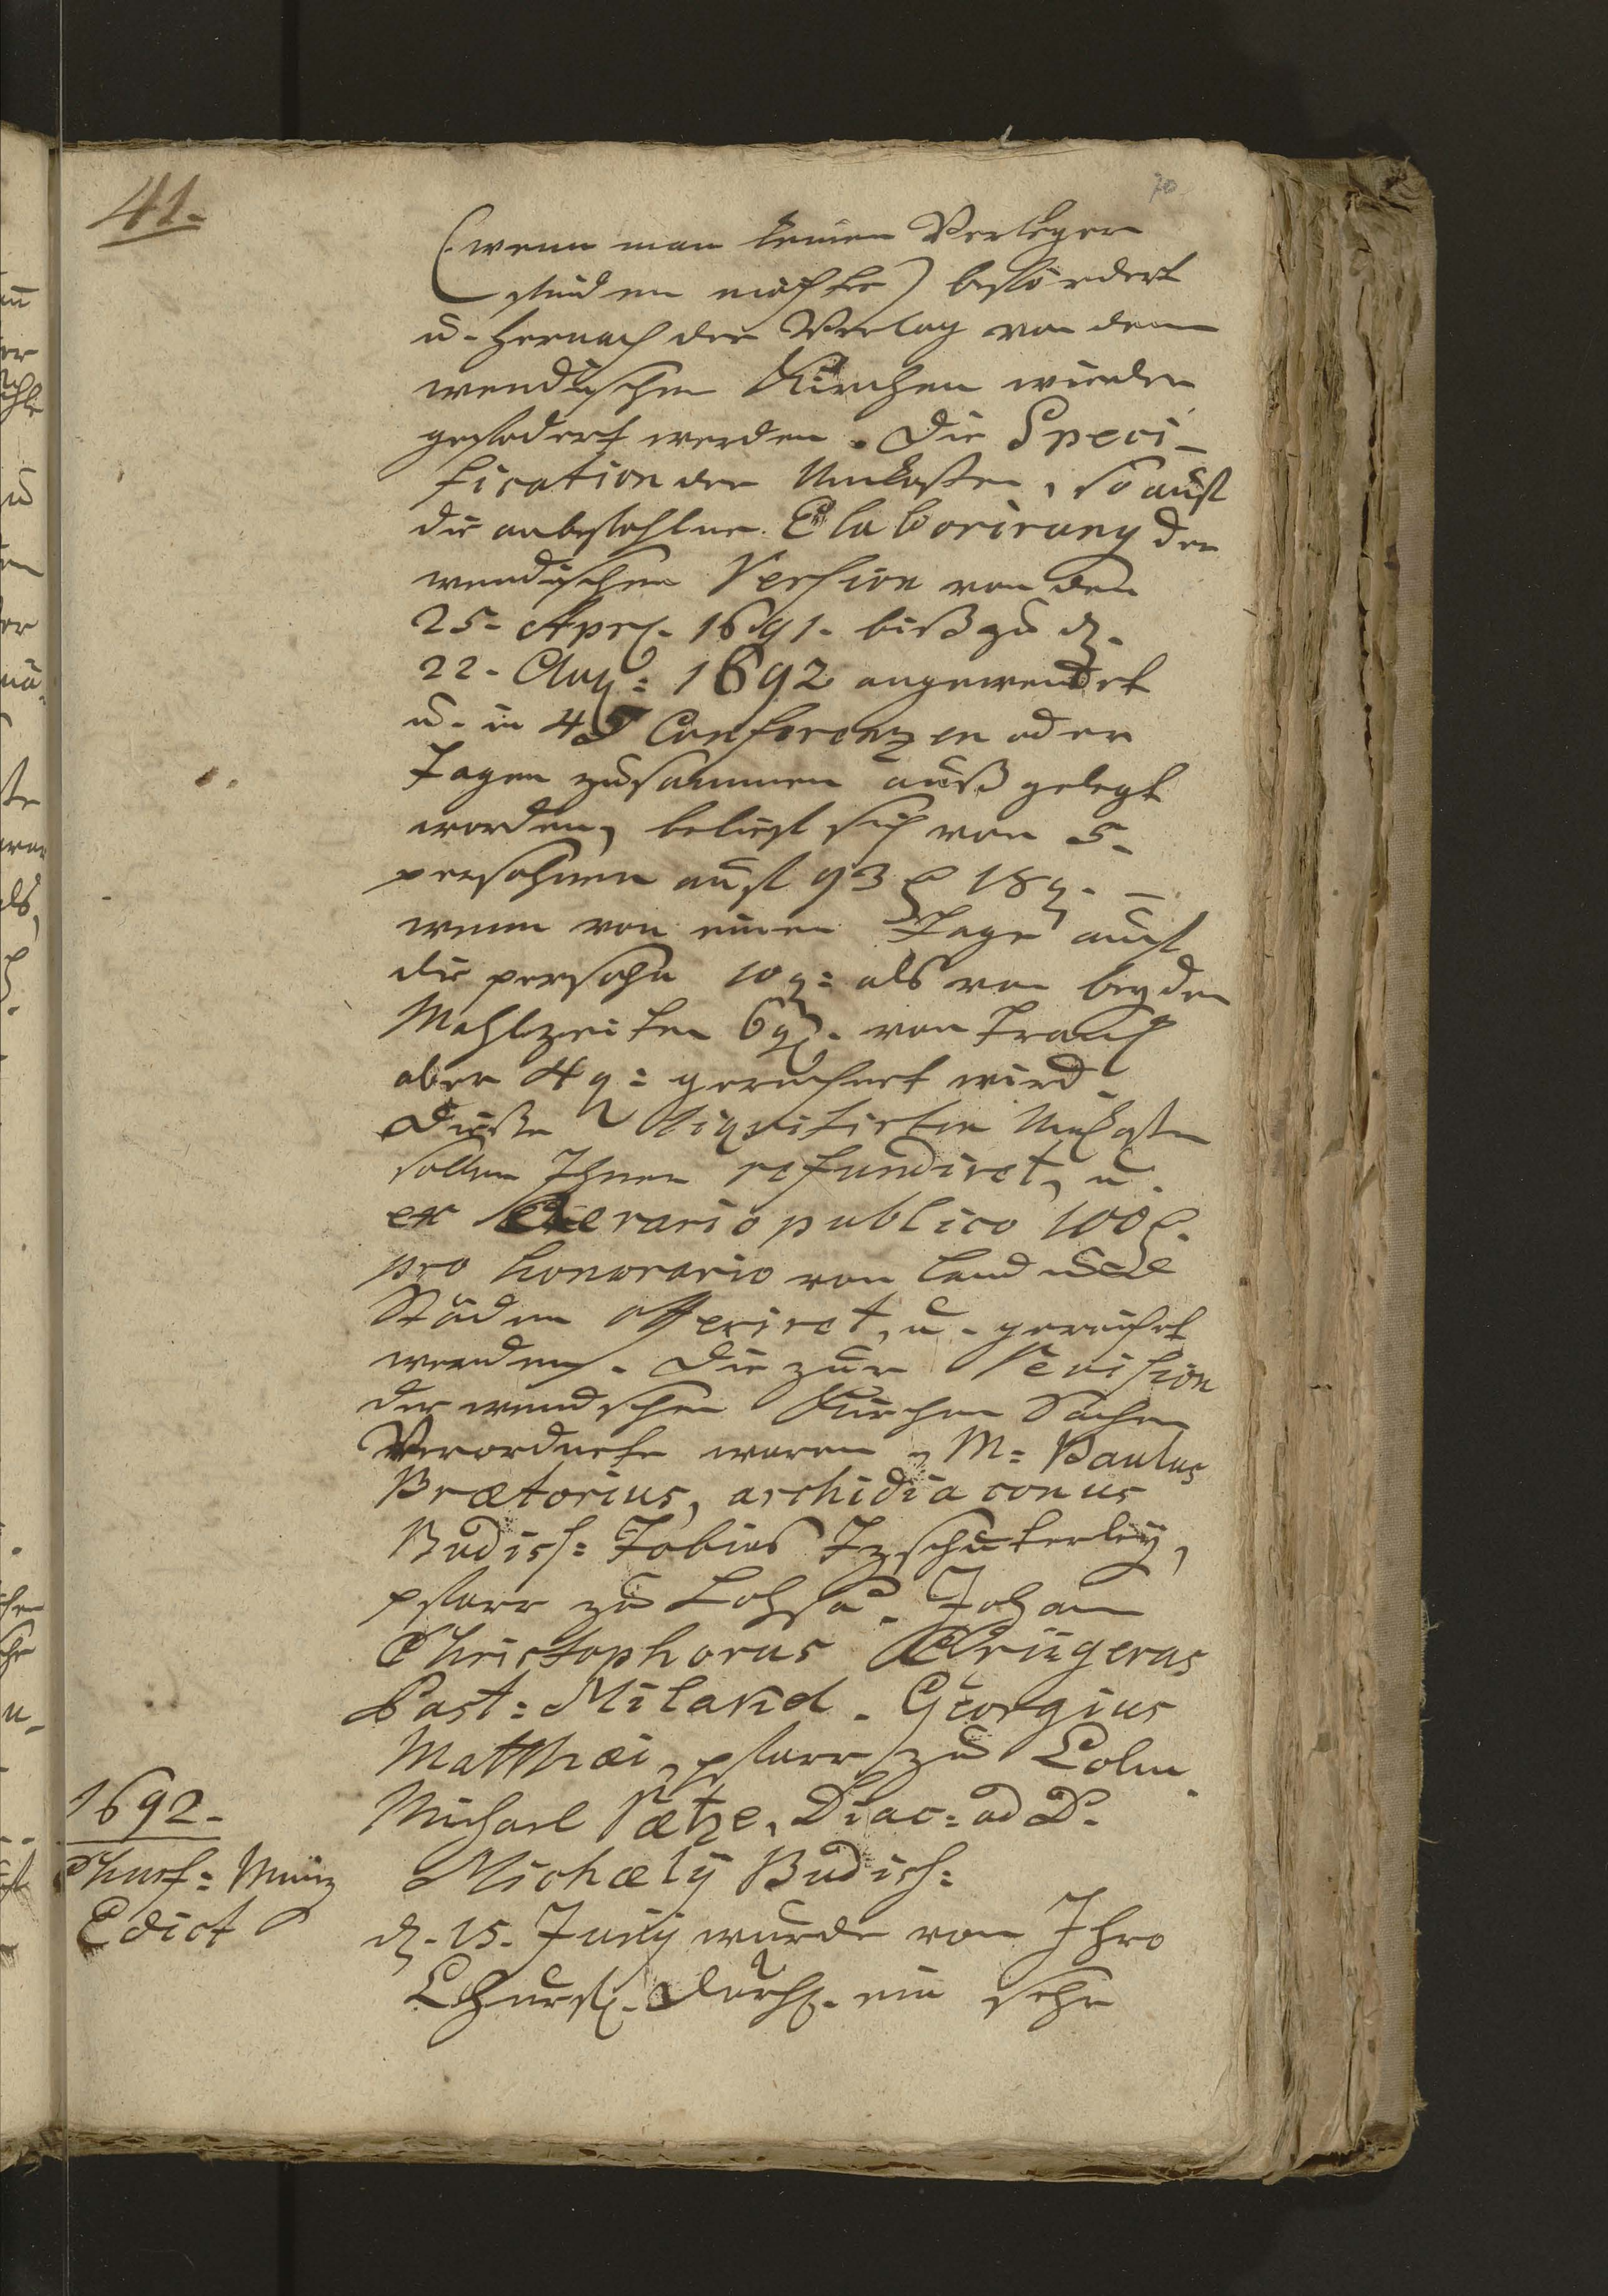 41.
70
(wenn man keinen Verleger
finden möchte) befördert
u. hernach der Verlag von denen
wendischen Kirchen wieder
gefodert werden. Die Speci-
fication der Unkosten, so auff
die anbefohlne Elaborirung der
wendischen Version von den
25. Apr. 1691. biß zu d.
22. Aug: 1692 angewendet
u. in 45 Conferenzen oder
Tagen zusammen auß gelegt
worden, belieft sich von 5.
persohnen auff 93 18 g. –
wenn von einen Tage auff
die persohn 10 g: als von beyden
Mahlzeiten 6 g. von Tranck
aber 4 g: gerechnet wird.
Dieße liquidirten Unkosten
sollen Ihnen refundiret, u.
ex Aerario publico 100
pro honorario von Land u
Städen offeriret, u. gereichet
werden. Die zur Revision
der wendschen Kirchen Sachen
Verordnete waren, M: Paulus
Prætorius, archidiaconus
Budiss: Tobias Tzschuderley,
pfarr zu Lohsa. Johann
Christophorus Crügerus
Past: Milakel. Georgius
Matthæi, pfarr zu Colm.
Michael Rætze, Diac: ad D.
Michælij Budiss:
1692.
Churf: Müntz
Edict
d. 15. Junij wurde von Ihro
Churfl. Durchl. ein sehr